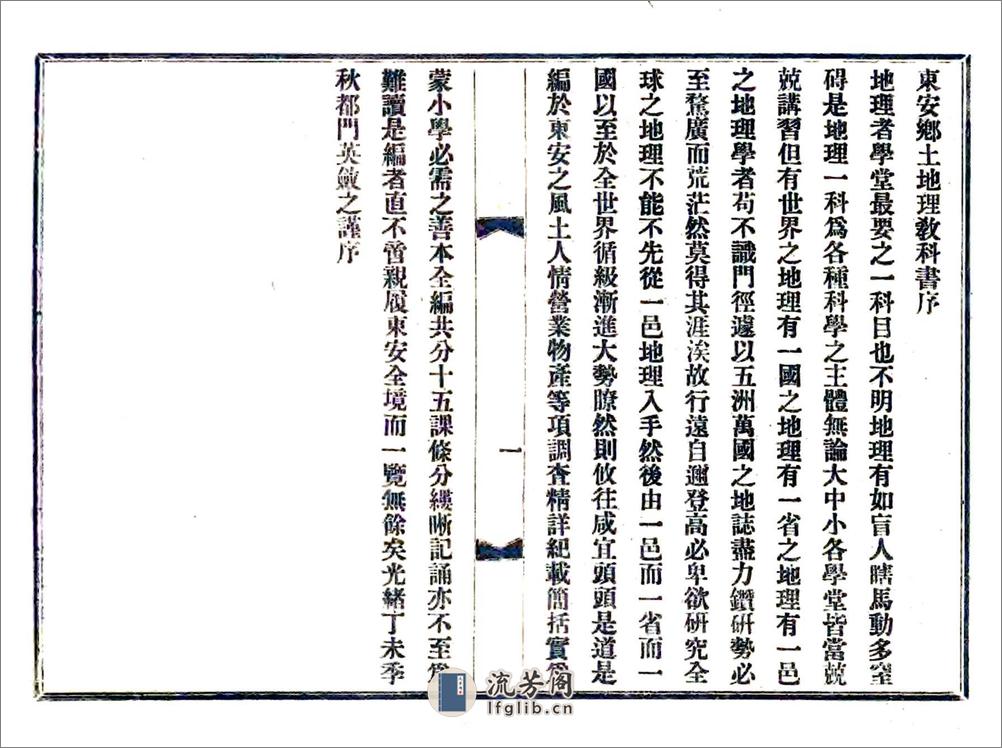 東安鄉土地理教科書序
地理者學堂最要之一科目也不明地理有如盲人瞎馬動多窒
碍是地理一科爲各種科學之主體無論大中小各學堂皆當兢
兢講習但有世界之地理有一國之地理有一省之地理有一邑
之地理學者苟不識門徑遽以五洲萬國之地誌盡力鑽研勢必
至騖廣而荒茫然莫得其涯涘故行遠自邇登高必卑欲研究全
球之地理不能不先從一邑地理入手然後由一邑而一省而一
國以至於全世界循級漸進大勢瞭然則攸往咸宜頭頭是道是
編於東安之風土人情營業物產等項調查精詳紀載簡括實爲
一
蒙小學必需之善本全編共分十五課條分縷晰記誦亦不至爲
難讀是編者直不啻親履東安全境而一覽無餘矣光緒丁未季
秋都門英斂之謹序
流芳阁
lfglib.cn